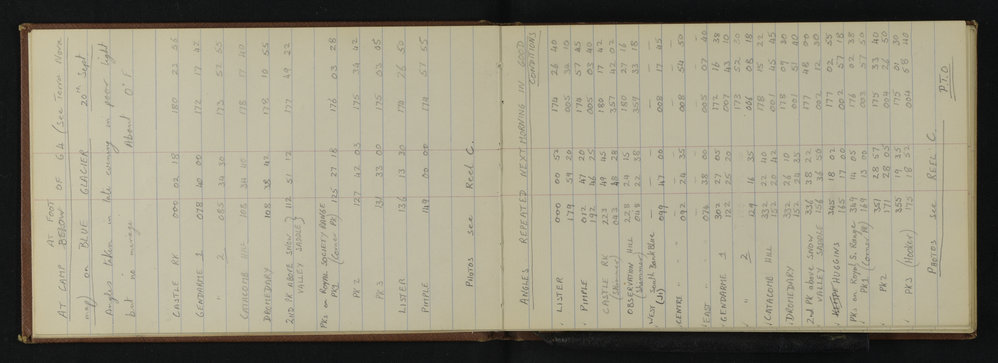 AT CAMP AT FOOT OF G4 (see Term Norm
BELOW
map) on BLUE GLACIER 20th Sept
Angles taken in late evening in poor light
but no mirage About 0°F
CASTLE RK 000 02 18 180 23 56
GENDARME 1 078 40 00 172 17 47
" 2 085 34 30 173 52 55
CATACOMB HILL 108 34 40 178 17 20
DROMEDARY 108 38 42 178 10 55
2ND PK ABOVE SNOW VALLEY SADDLE } 112 51 12 177 49 22
PKs on ROYAL SOCIETY RANGE
PK1 (Corner Pk) 125 27 18 176 03 28
PK 2 127 42 03 175 34 42
PK 3 131 33 00 175 03 05
LISTER 136 13 30 174 26 50
PIMPLE 149 00 00 174 57 55
PHOTOS see Reel C.
ANGLES REPEATED NEXT MORNING IN GOOD CONDITIONS
LISTER 000 00 52 174 26 40
179 59 20 005 34 10
PIMPLE 012 47 20 174 57 45
192 46 25 005 03 40
CASTLE RK 223 49 45 180 17 42
(Shimmer) 48 28 357 42 02
OBSERVATION HILL 228 24 15 180 27 16
(Shimmer) 048 22 38 359 33 18
WEST South Back Blue (St) 099 47 00 008 17 45
CENTRE " 092 24 35 008 54 50
EAST " 074 38 00 005 07 40
GENDARME 1 302 27 05 172 16 38
122 25 20 007 43 10
" 2 173 52 30
129 16 35 006 08 18
CATACOMB HILL 332 22 40 178 15 22
152 20 42 001 45 45
DROMEDARY 332 26 10 178 09 30
152 24 35 001 51 40
2nd PK above SNOW 336 38 22 177 48 00
VALLEY SADDLE 156 36 50 002 12 30
HUGGINS 345 18 02 177 02 55
165 17 00 002 57 18
PKs on Royal S. Range 349 14 05 176 02 38
PK1 (Corner Pk) 169 13 00 003 57 50
PK2 351 28 57 175 33 40
171 28 05 004 26 50
PK3 355 19 35 175 01 30
(Hooker) 175 18 52 004 58 40
PHOTOS see REEL C. P.T.O